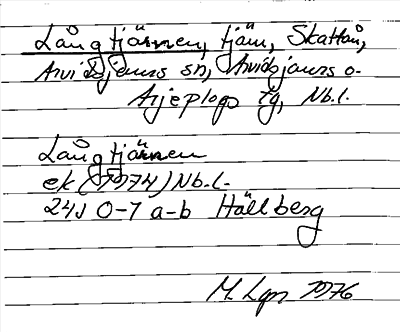 Långtjärnen, tjärn, Skattån,
Arvidsjaurs sn, Arvidsjaurs o.
Arjeplogs tg, Nb.l.
Långtjärnen
ek (1974) Nb.l.
24J 0-1 a-b Hällberg
M. Lgn 1976